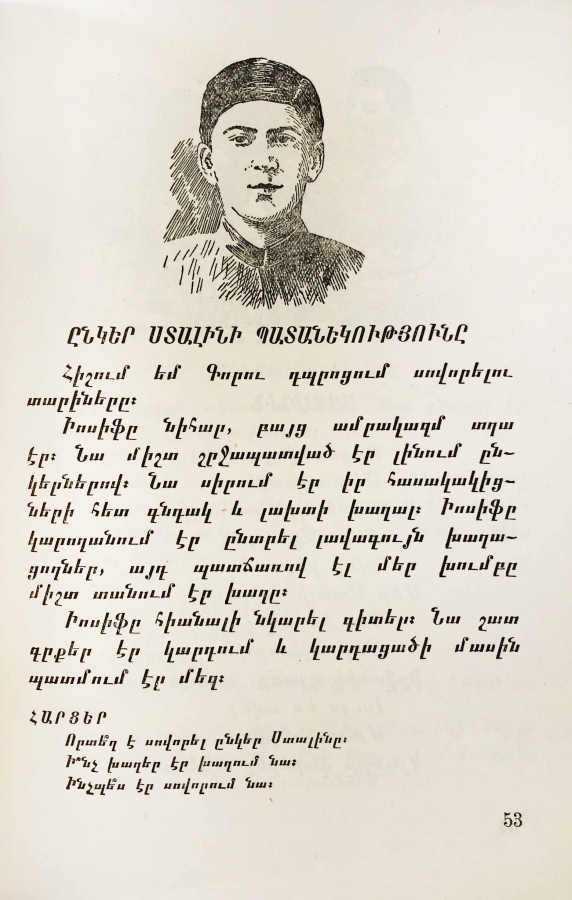 ԸՆԿԵՐ ՍՏԱԼԻՆԻ ՊԱՏԱՆԵԿՈՒԹՅՈՒՆԸ
Հիշում եմ Գորու դպրոցում սովորելու
տարիները։
Իոսիֆը նիհար, բայց ամրակազմ տղա
էր։ Նա միշտ շրջապատված էր լինում ըն-
կերներով։ Նա սիրում էր իր հասակակից-
ների հետ գնդակ և լախտի խաղալ։ Իոսիֆը
կարողանում էր ընտրել լավագույն խաղա-
ցողներ, այդ պատճառով էլ մեր խումբը
միշտ տանում էր խաղը։
Իոսիֆը հիանալի նկարել գիտեր։ Նա շատ
գրքեր էր կարդում և կարդացածի մասին
պատմում էր մեզ։
ՀԱՐՑԵՐ
Որտե՞ղ է սովորել ընկեր Ստալինը։
Ի՞նչ խաղեր էր խաղում նա։
Ինչպե՞ս էր սովորում նա։
53